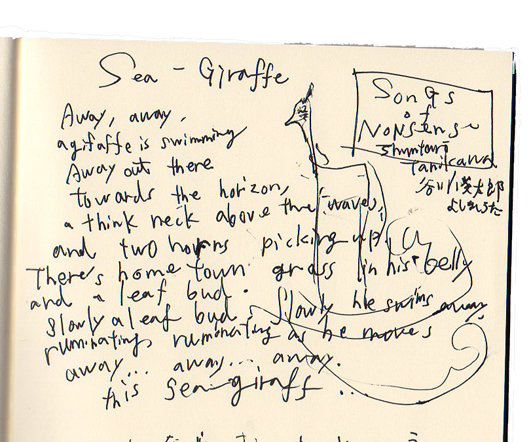 Sea - Giraffe
Songs
of
Nonsense
Shuntaro
Tanikawa
谷川俊太郎
よしはらうた
Away, away,
a giraffe is swimming
Away out there
towards the horizon,
a think neck above the waves,
and two horns picking up
There's home town grass in his belly
and a leaf bud.
Slowly a leaf bud. Slowly he swims away
ruminating, ruminating as he moves
away... away... away.
this Sea-giraff ...